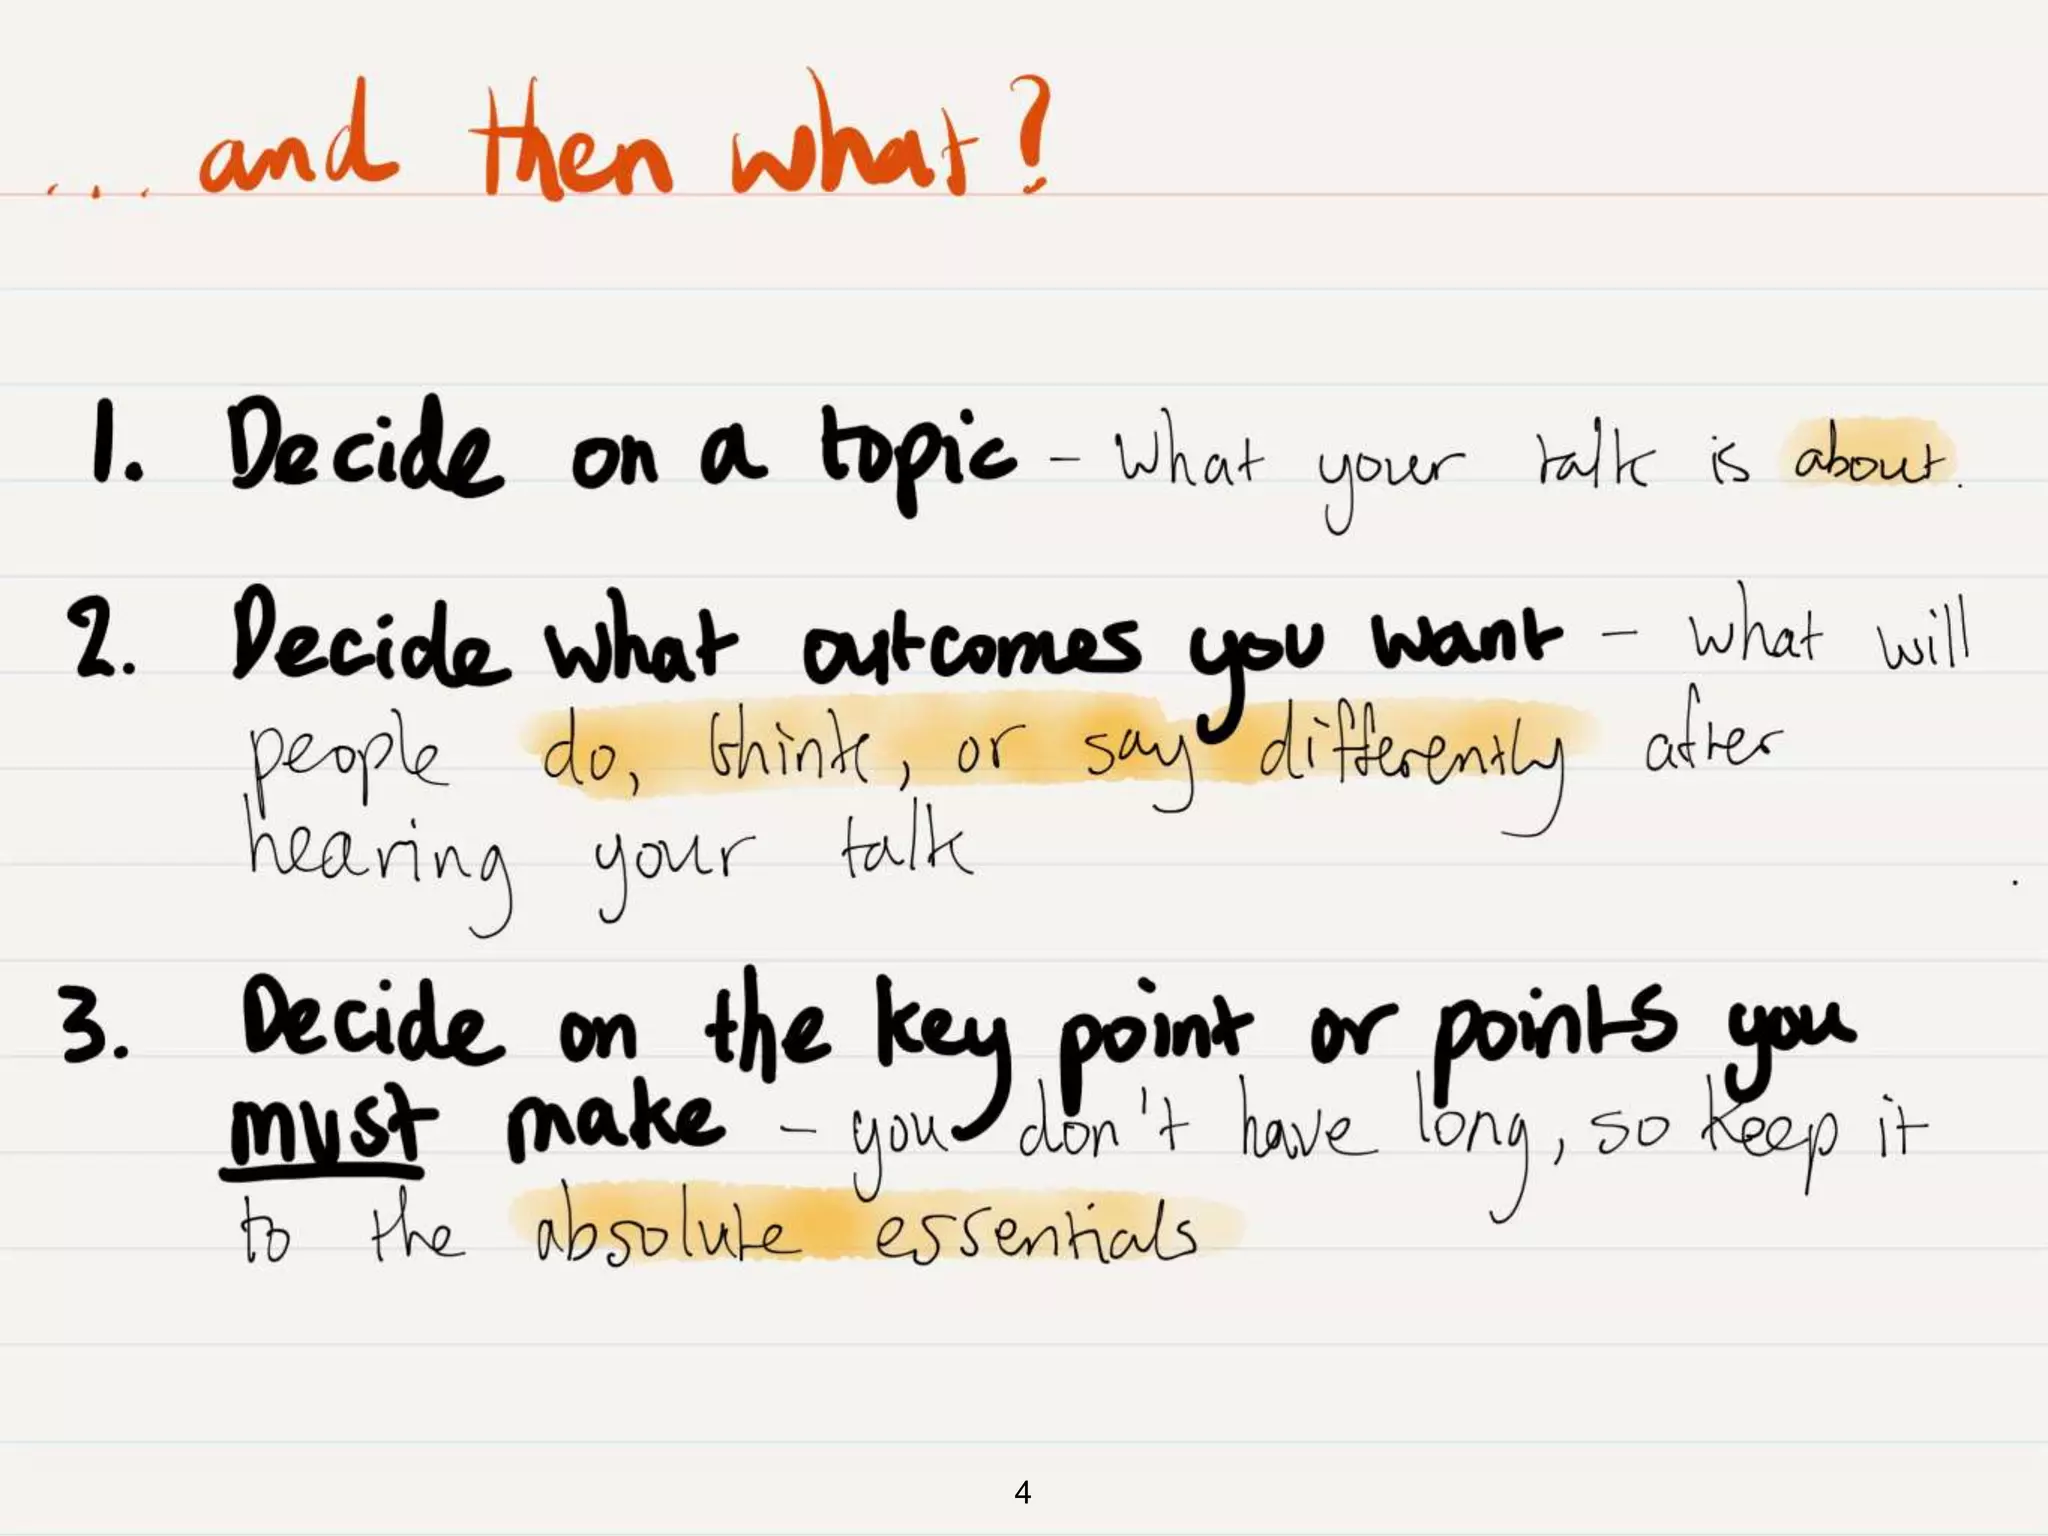 ... and then what?
1. Decide on a topic - What your talk is about.
2. Decide what outcomes you want - what will
people do, think, or say differently after
hearing your talk
3. Decide on the key point or points you
must make - you don't have long, so keep it
to the absolute essentials
4